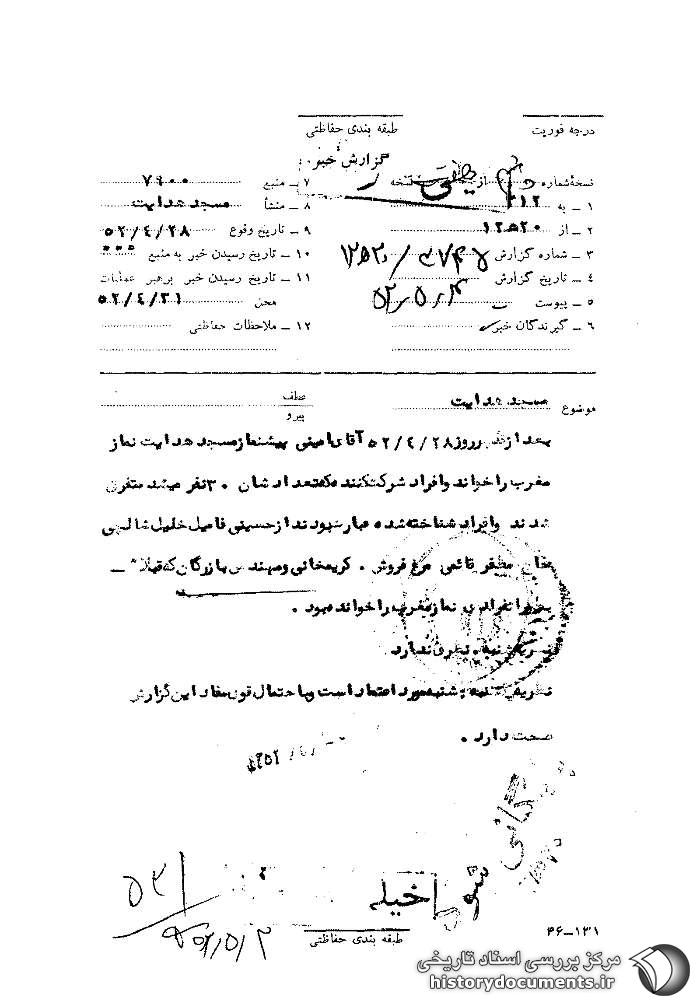 درجه فوریت
طبقه بندی حفاظتی
گزارش خبر
نسخهٔ شماره از نسخه
۱ ـ به ۳۱۲
۲ ـ از ۲۰ه۱۲
۳ ـ شماره گزارش
۴ ـ تاریخ گزارش
۵ ـ پیوست
۶ ـ گیرندگان خبر
۷ ـ منبع ۷۹۰۰
۸ ـ منشأ مسجد هدایت
۹ ـ تاریخ وقوع ۵۲/۴/۲۸
۱۰ ـ تاریخ رسیدن خبر به منبع
۱۱ ـ تاریخ رسیدن خبر برهبر عملیات
محل ۵۲/۴/۳۱
۱۲ ـ ملاحظات حفاظتی
موضوع مسجد هدایت
عطف
پیرو
بعد از ظهر روز ۵۲/۴/۲۸ آقای امینی پیشنماز مسجد هدایت نماز
مغرب را خواند و افراد شرکت کننده که تعدادشان ۳۰ نفر میشد متفرق
شدند و افراد شناخته شده عبارت بودند از حسینی فامیل خلیل شالچی
مظفر قائمی مرغ فروش . کریمخانی و مهندس بازرگان که قبلا" ـ
نماز مغرب را خوانده بود .
نظریه شنبه . نظری ندارد
نظریه شنبه مورد اعتماد است و باحتمال قوی مفاد این گزارش
صحت دارد .
۴۶-۱۳۱
طبقه بندی حفاظتی
مرکز بررسی اسناد تاریخی
historydocuments.ir